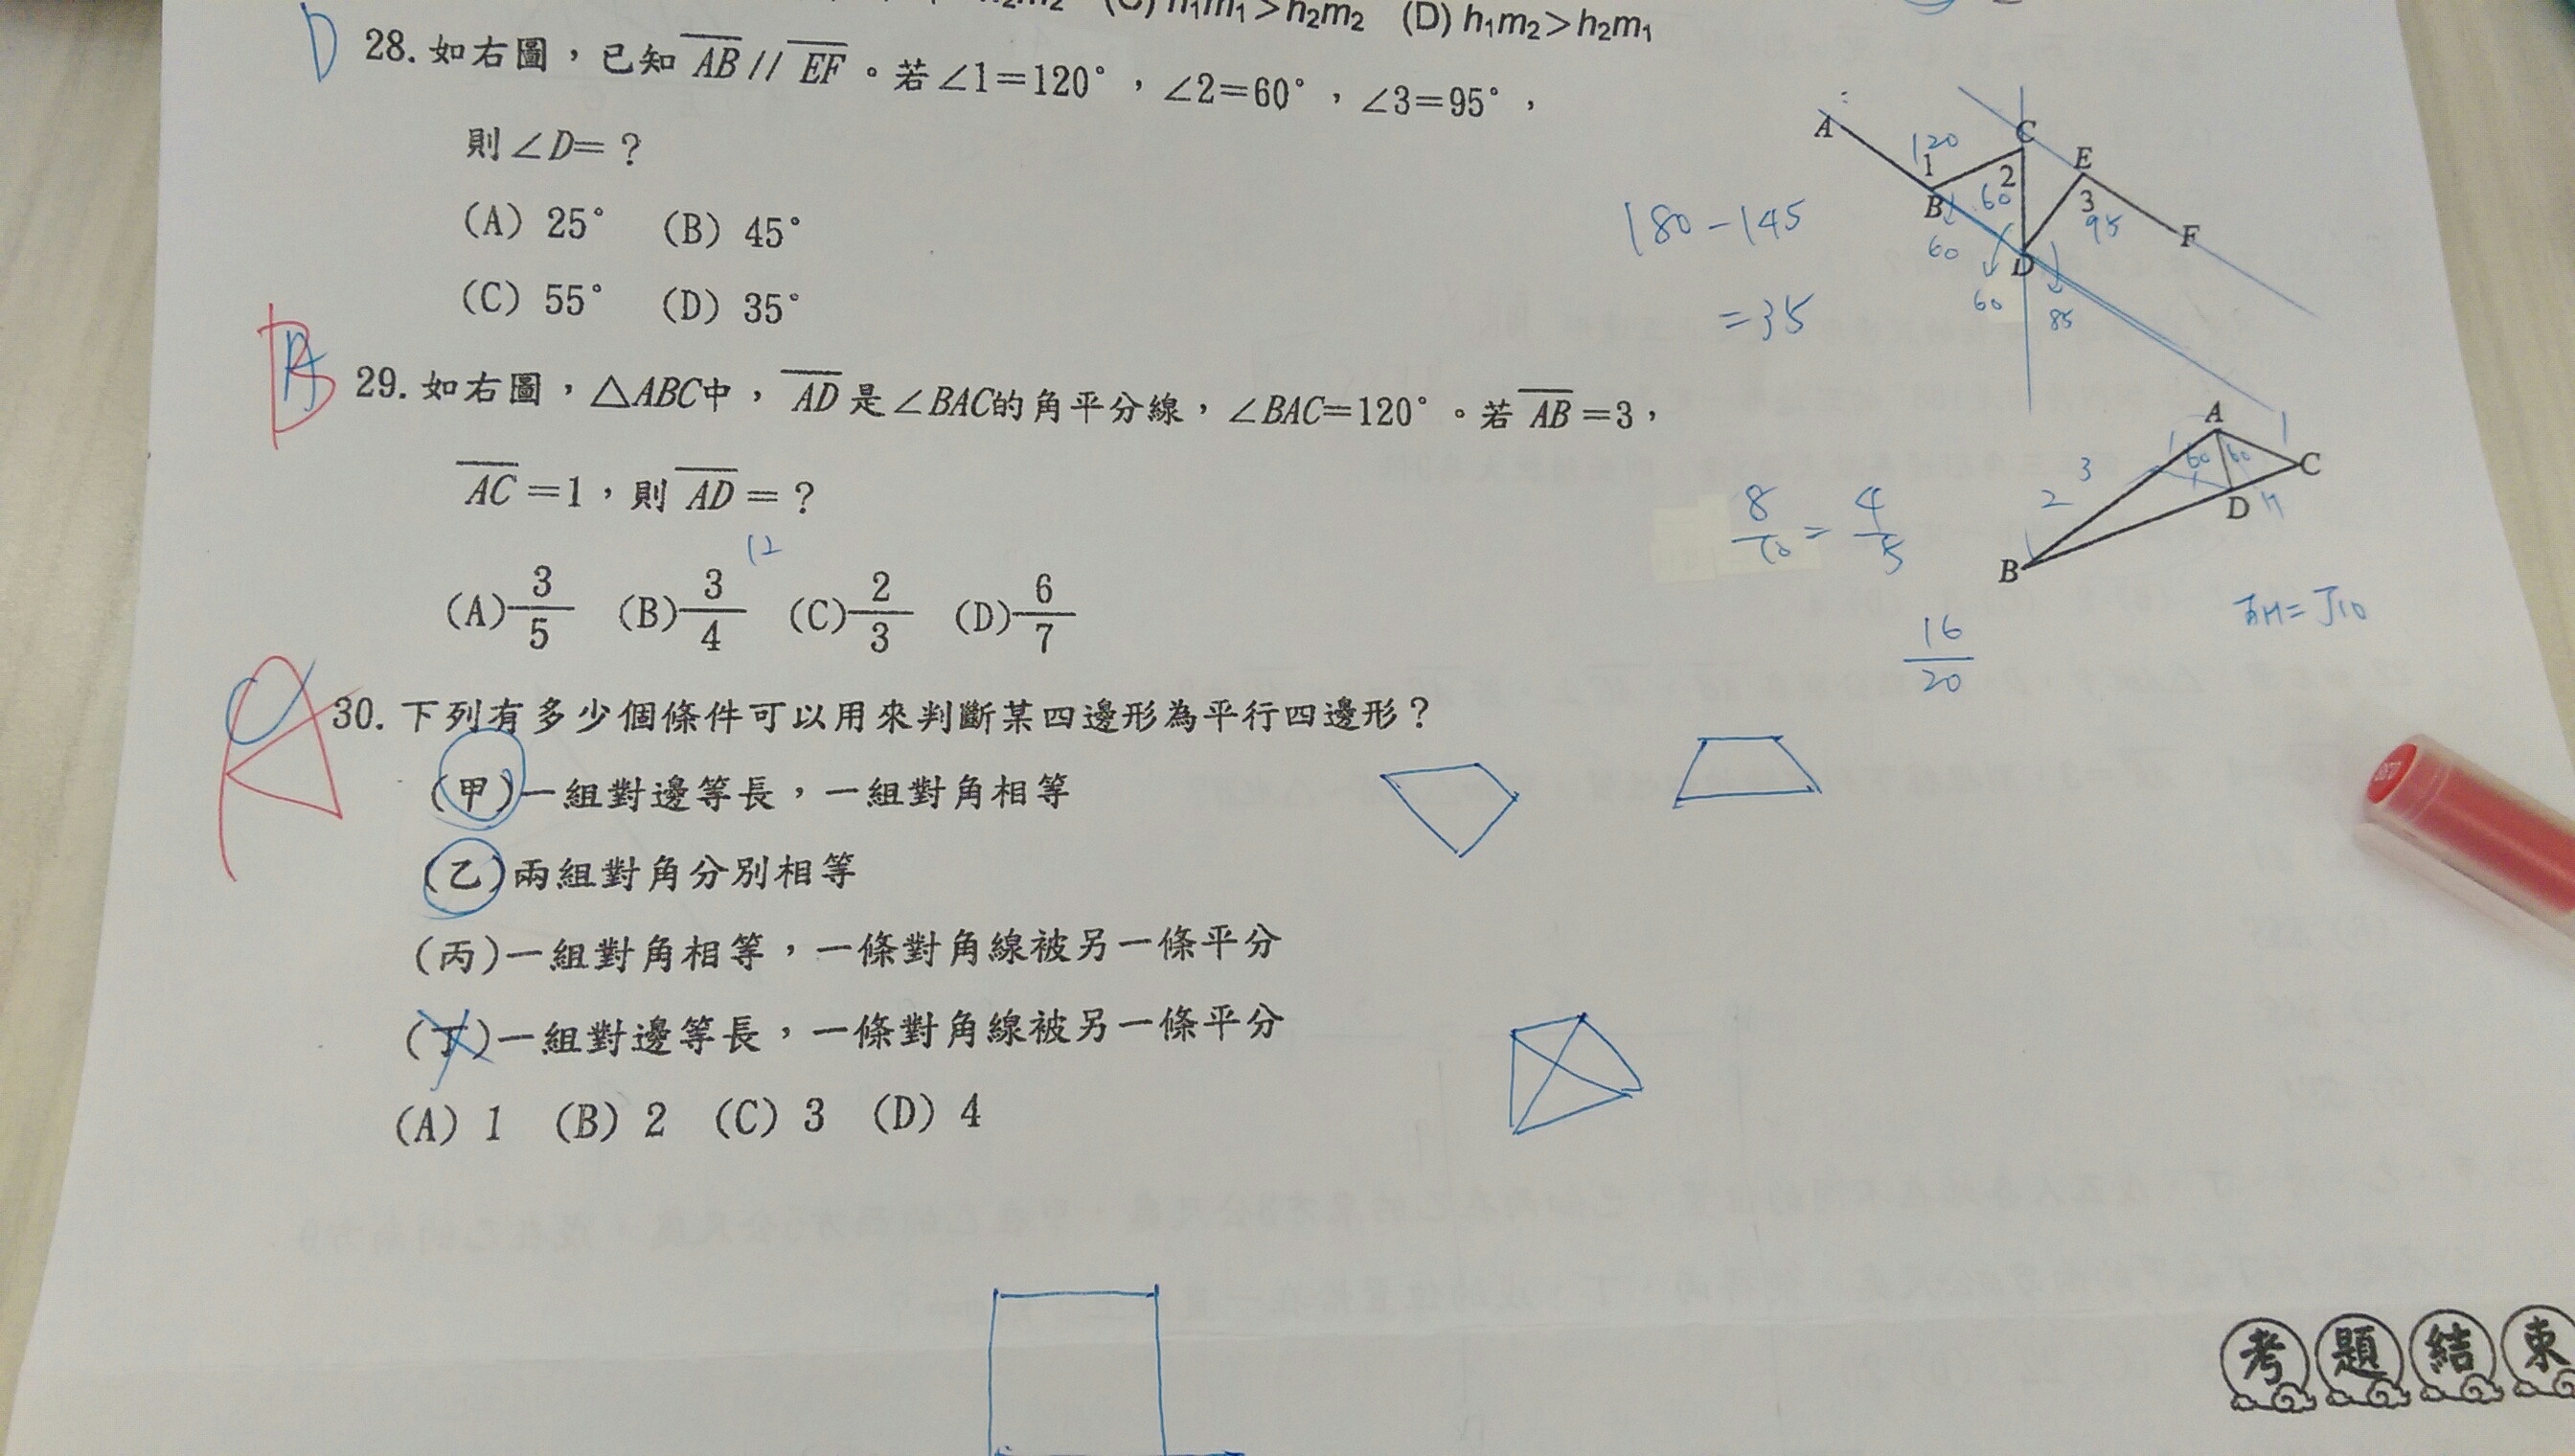 (C) h₁m₁＞h₂m₂ (D) h₁m₂＞h₂m₁
D 28. 如右圖，已知 AB // EF。若∠1＝120°，∠2＝60°，∠3＝95°，
則∠D＝？
(A) 25° (B) 45°
(C) 55° (D) 35°
A C E 120 1 2 60 B 60 3 95 F D 60 85
180－145
＝35
B A 29. 如右圖，△ABC中，AD是∠BAC的角平分線，∠BAC＝120°。若AB＝3，
AC＝1，則AD＝？
12
(A) 3/5 (B) 3/4 (C) 2/3 (D) 6/7
A 1 60 60 C 3 2 D H B
8/10 = 4/5
16/20
BH=√10
A C 30. 下列有多少個條件可以用來判斷某四邊形為平行四邊形？
(甲)一組對邊等長，一組對角相等
(乙)兩組對角分別相等
(丙)一組對角相等，一條對角線被另一條平分
(丁)一組對邊等長，一條對角線被另一條平分
(A) 1 (B) 2 (C) 3 (D) 4
考題結束